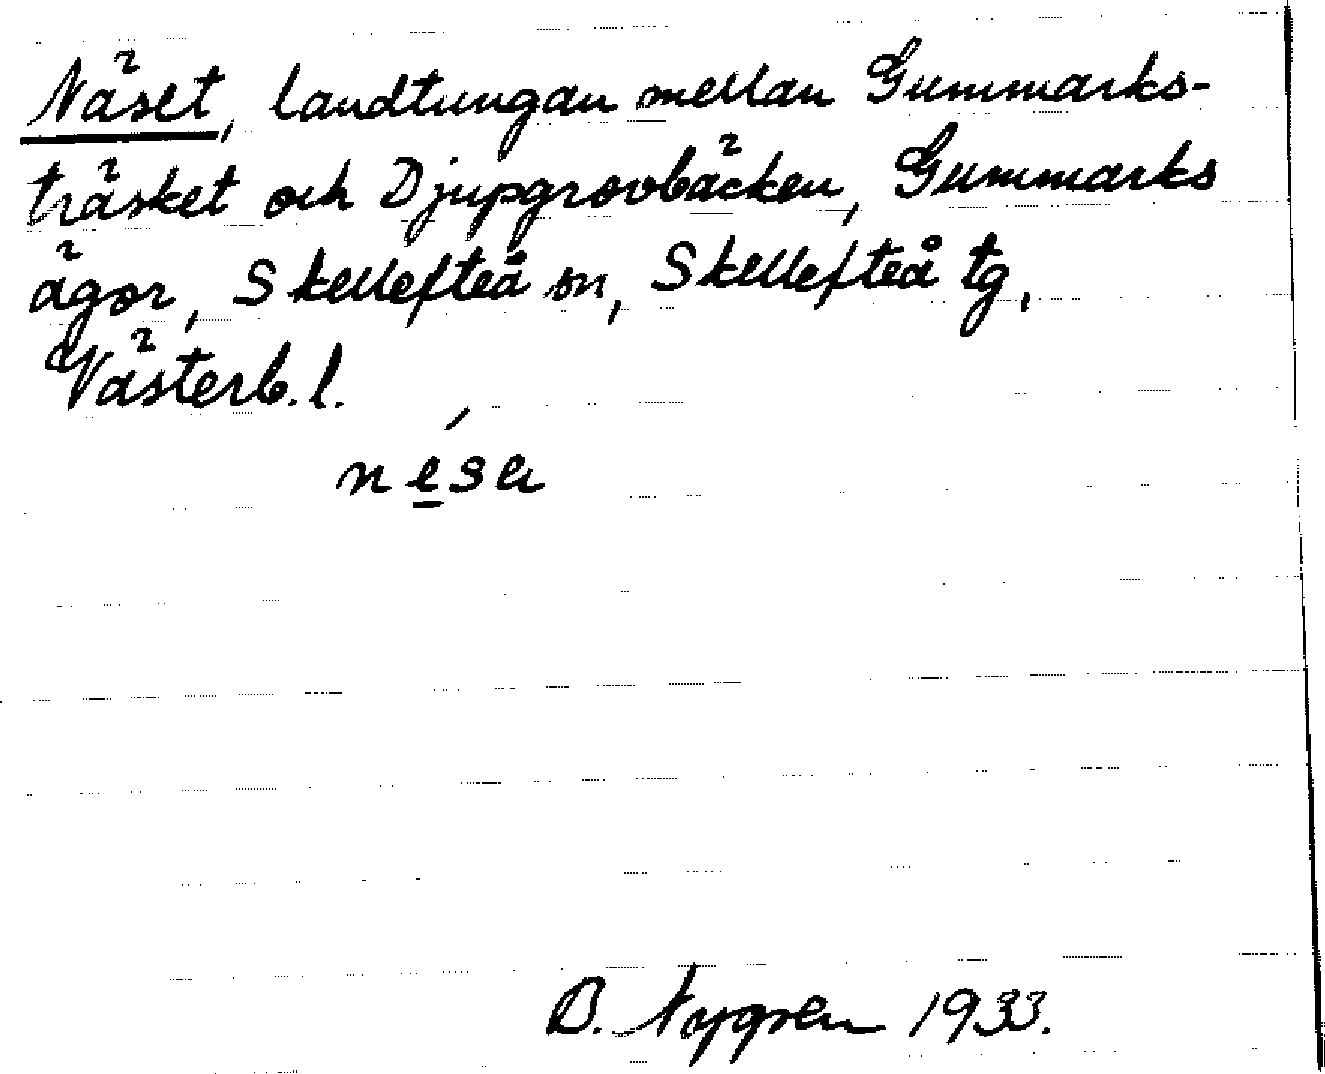 Näset, landtungan mellan Gummarks-
träsket och Djupgrovbäcken, Gummarks
ägor, Skellefteå sn, Skellefteå tg,
Västerb. l.
B. Nygren 1933.